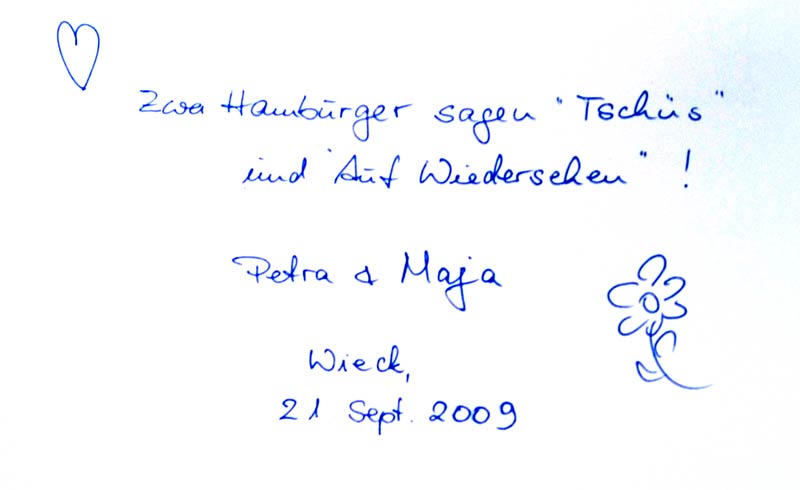 Zwa Hamburger sagen "Tschüs"
und "Auf Wiedersehen"!
Petra & Maja
Wieck,
21 Sept. 2009